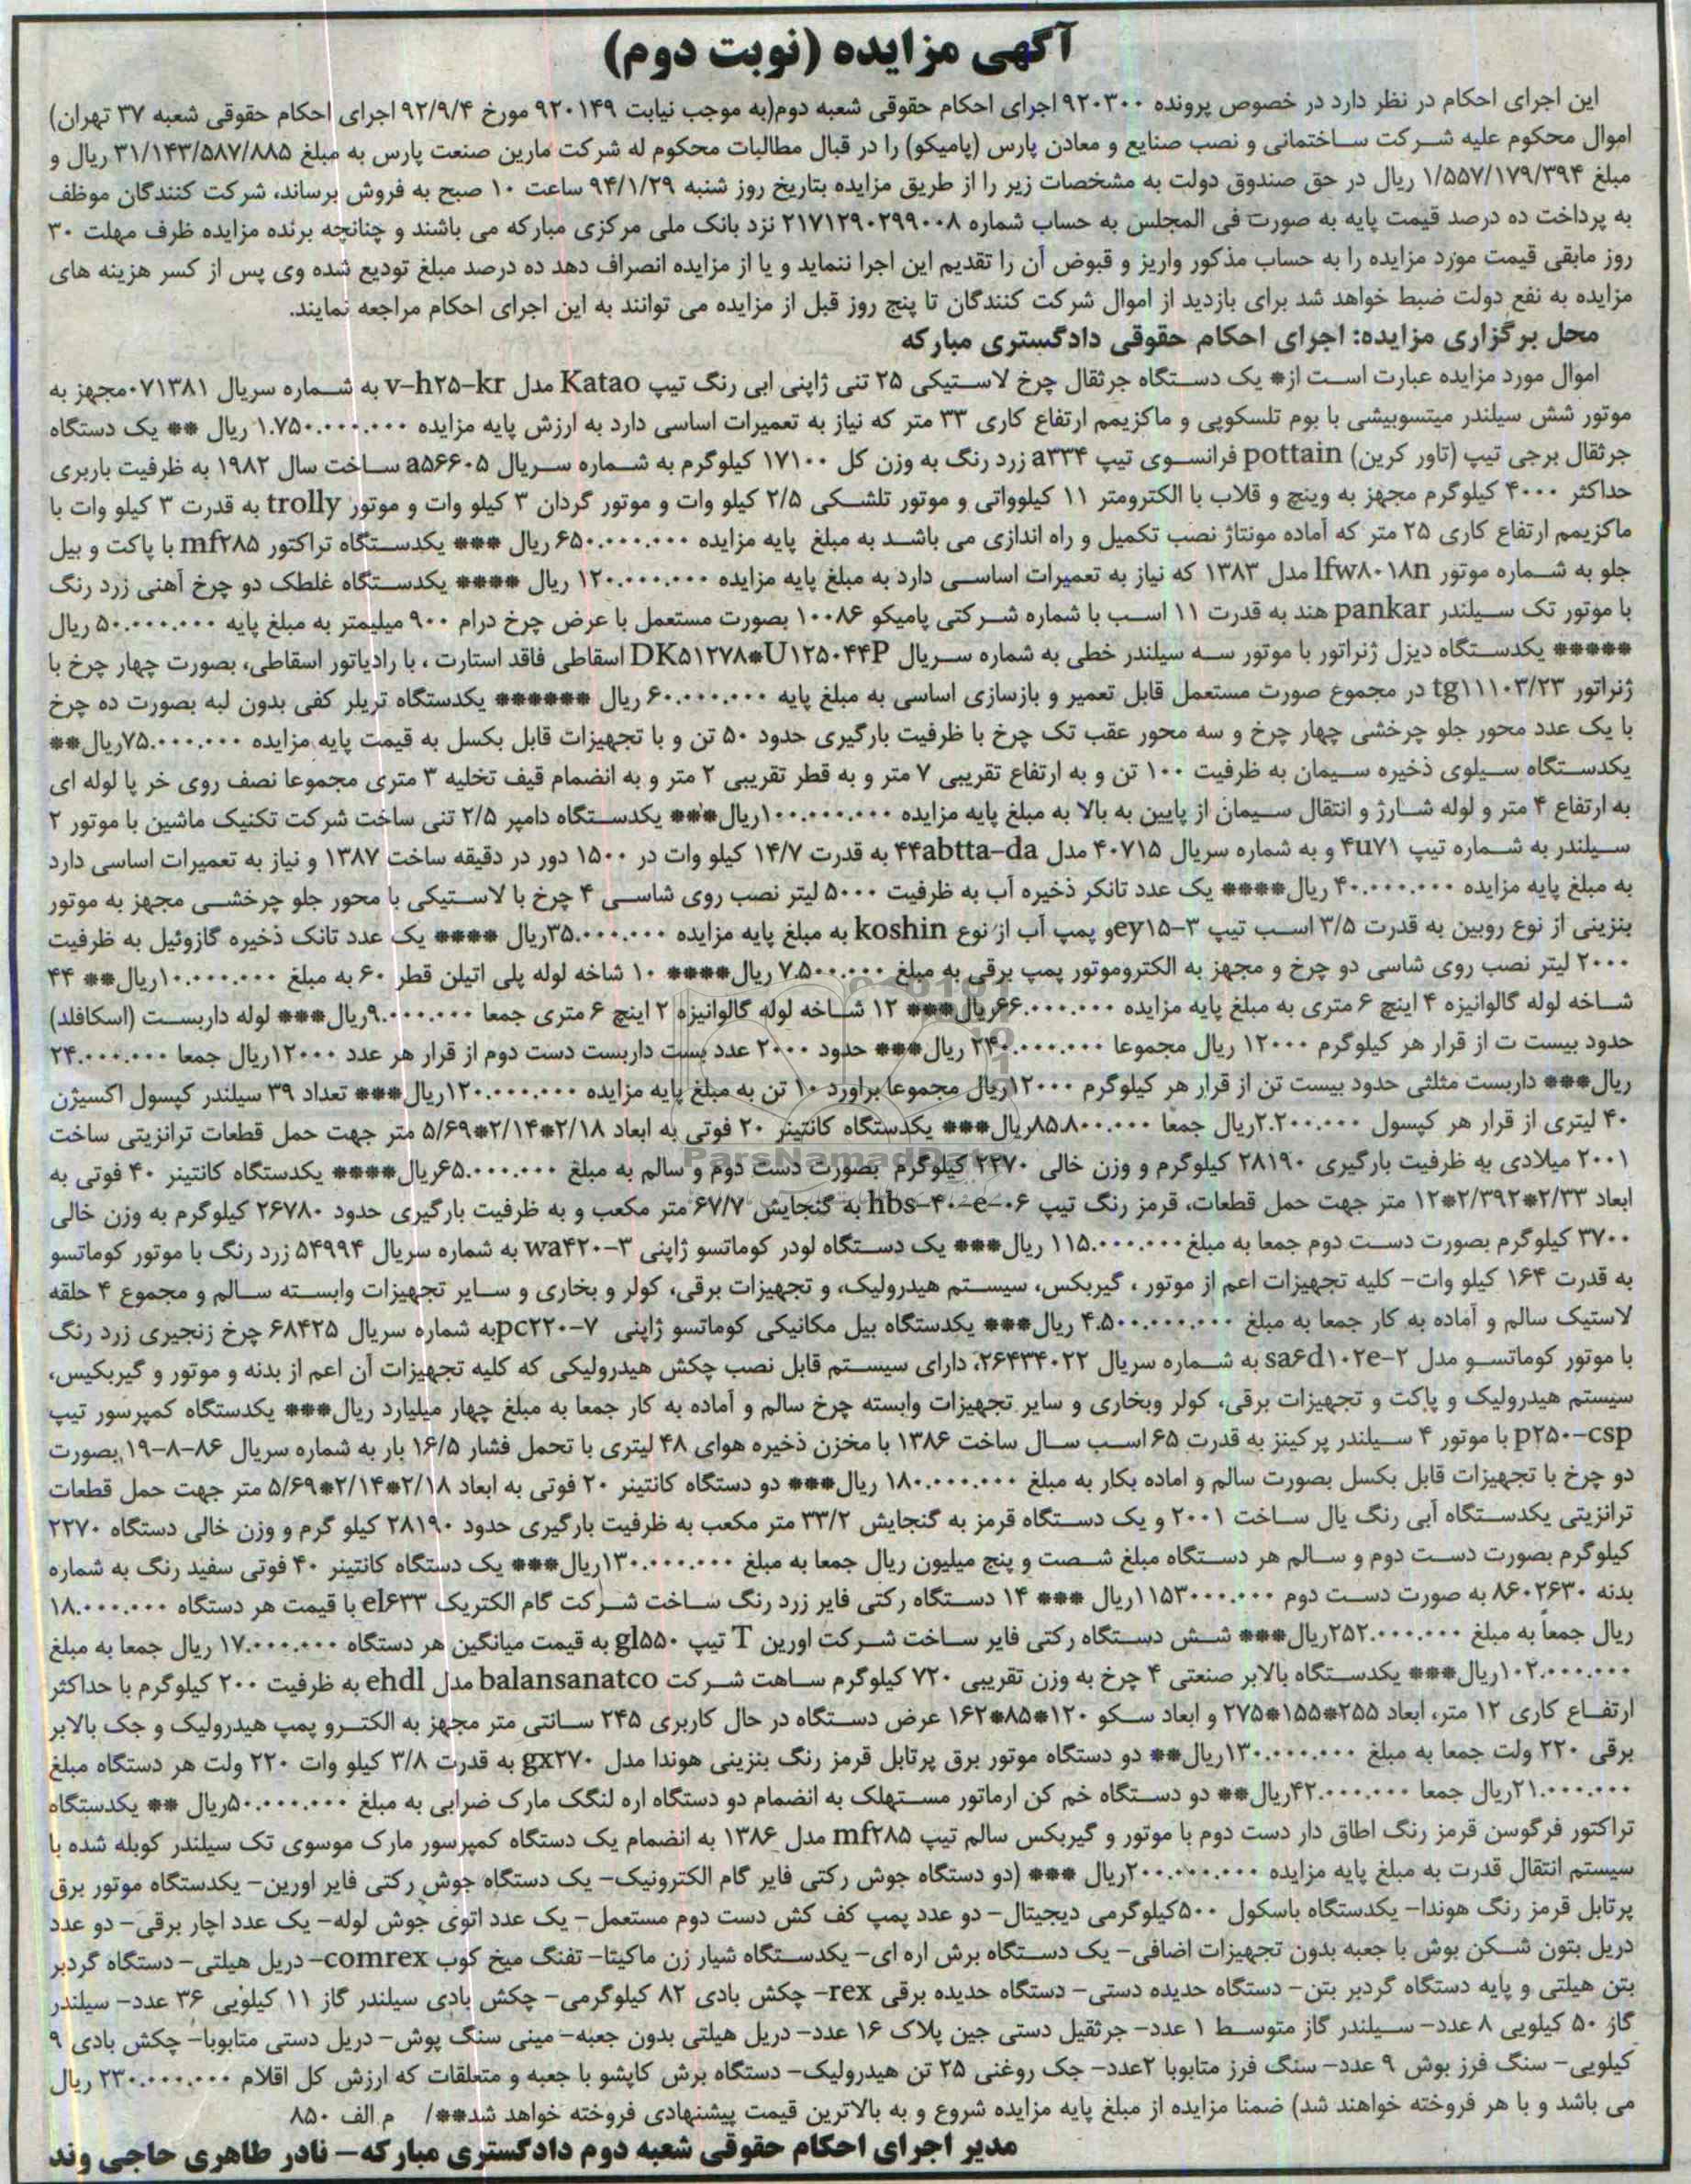 آگهی مزایده (نوبت دوم)
این اجرای احکام در نظر دارد در خصوص پرونده ۹۲۰۳۰۰ اجرای احکام حقوقی شعبه دوم(به موجب نیابت ۹۲۰۱۴۹ مورخ ۹۲/۹/۴ اجرای احکام حقوقی شعبه ۳۷ تهران)
اموال محکوم علیه شرکت ساختمانی و نصب صنایع و معادن پارس (پامیکو) را در قبال مطالبات محکوم له شرکت مارین صنعت پارس به مبلغ ۳۱/۱۴۳/۵۸۷/۸۸۵ ریال و
مبلغ ۱/۵۵۷/۱۷۹/۳۹۴ ریال در حق صندوق دولت به مشخصات زیر را از طریق مزایده بتاریخ روز شنبه ۹۴/۱/۲۹ ساعت ۱۰ صبح به فروش برساند، شرکت کنندگان موظف
به پرداخت ده درصد قیمت پایه به صورت فی المجلس به حساب شماره ۲۱۷۱۲۹۰۲۹۹۰۰۸ نزد بانک ملی مرکزی مبارکه می باشند و چنانچه برنده مزایده ظرف مهلت ۳۰
روز مابقی قیمت مورد مزایده را به حساب مذکور واریز و قبوض آن را تقدیم این اجرا ننماید و یا از مزایده انصراف دهد ده درصد مبلغ تودیع شده وی پس از کسر هزینه های
مزایده به نفع دولت ضبط خواهد شد برای بازدید از اموال شرکت کنندگان تا پنج روز قبل از مزایده می توانند به این اجرای احکام مراجعه نمایند.
محل برگزاری مزایده: اجرای احکام حقوقی دادگستری مبارکه
اموال مورد مزایده عبارت است از* یک دستگاه جرثقال چرخ لاستیکی ۲۵ تنی ژاپنی ابی رنگ تیپ Katao مدل v-h۲۵-kr به شماره سریال ۰۷۱۳۸۱مجهز به
موتور شش سیلندر میتسوبیشی با بوم تلسکوپی و ماکزیمم ارتفاع کاری ۳۳ متر که نیاز به تعمیرات اساسی دارد به ارزش پایه مزایده ۱.۷۵۰.۰۰۰.۰۰۰ ریال ** یک دستگاه
جرثقال برجی تیپ (تاور کرین) pottain فرانسوی تیپ a۲۳۴ زرد رنگ به وزن کل ۱۷۱۰۰ کیلوگرم به شماره سریال a۵۶۶۰۵ ساخت سال ۱۹۸۲ به ظرفیت باربری
حداکثر ۴۰۰۰ کیلوگرم مجهز به وینچ و قلاب با الکترومتر ۱۱ کیلوواتی و موتور تلشکی ۲/۵ کیلو وات و موتور گردان ۳ کیلو وات و موتور trolly به قدرت ۳ کیلو وات با
ماکزیمم ارتفاع کاری ۲۵ متر که آماده مونتاژ نصب تکمیل و راه اندازی می باشد به مبلغ پایه مزایده ۶۵۰.۰۰۰.۰۰۰ ریال *** یکدستگاه تراکتور mf۲۸۵ با پاکت و بیل
جلو به شماره موتور lfw۸۰۱۸n مدل ۱۳۸۳ که نیاز به تعمیرات اساسی دارد به مبلغ پایه مزایده ۱۲۰.۰۰۰.۰۰۰ ریال **** یکدستگاه غلطک دو چرخ آهنی زرد رنگ
با موتور تک سیلندر pankar هند به قدرت ۱۱ اسب با شماره شرکتی پامیکو ۱۰۰۸۶ بصورت مستعمل با عرض چرخ درام ۹۰۰ میلیمتر به مبلغ پایه ۵۰.۰۰۰.۰۰۰ ریال
***** یکدستگاه دیزل ژنراتور با موتور سه سیلندر خطی به شماره سریال DK۵۱۲۷۸*U۱۲۵۰۴۴P اسقاطی فاقد استارت ، با رادیاتور اسقاطی، بصورت چهار چرخ با
ژنراتور tg۱۱۱۰۳/۲۳ در مجموع صورت مستعمل قابل تعمیر و بازسازی اساسی به مبلغ پایه ۶۰.۰۰۰.۰۰۰ ریال ****** یکدستگاه تریلر کفی بدون لبه بصورت ده چرخ
با یک عدد محور جلو چرخشی چهار چرخ و سه محور عقب تک چرخ با ظرفیت بارگیری حدود ۵۰ تن و با تجهیزات قابل بکسل به قیمت پایه مزایده ۷۵.۰۰۰.۰۰۰ریال**
یکدستگاه سیلوی ذخیره سیمان به ظرفیت ۱۰۰ تن و به ارتفاع تقریبی ۷ متر و به قطر تقریبی ۲ متر و به انضمام قیف تخلیه ۳ متری مجموعا نصف روی خر پا لوله ای
به ارتفاع ۴ متر و لوله شارژ و انتقال سیمان از پایین به بالا به مبلغ پایه مزایده ۱۰۰.۰۰۰.۰۰۰ریال*** یکدستگاه دامپر ۲/۵ تنی ساخت شرکت تکنیک ماشین با موتور ۲
سیلندر به شماره تیپ ۴u۷۱ و به شماره سریال ۴۰۷۱۵ مدل ۴۴abtta-da به قدرت ۱۴/۷ کیلو وات در ۱۵۰۰ دور در دقیقه ساخت ۱۳۸۷ و نیاز به تعمیرات اساسی دارد
به مبلغ پایه مزایده ۴۰.۰۰۰.۰۰۰ ریال**** یک عدد تانکر ذخیره آب به ظرفیت ۵۰۰۰ لیتر نصب روی شاسی ۴ چرخ با لاستیکی با محور جلو چرخشی مجهز به موتور
بنزینی از نوع روبین به قدرت ۳/۵ اسب تیپ ey۱۵-۳و پمپ آب از نوع koshin به مبلغ پایه مزایده ۳۵.۰۰۰.۰۰۰ریال **** یک عدد تانک ذخیره گازوئیل به ظرفیت
۲۰۰۰ لیتر نصب روی شاسی دو چرخ و مجهز به الکتروموتور پمپ برقی به مبلغ ۷.۵۰۰.۰۰۰ ریال**** ۱۰ شاخه لوله پلی اتیلن قطر ۶۰ به مبلغ ۱۰.۰۰۰.۰۰۰ریال** ۴۴
شاخه لوله گالوانیزه ۴ اینچ ۶ متری به مبلغ پایه مزایده ۶۶.۰۰۰.۰۰۰ریال*** ۱۲ شاخه لوله گالوانیزه ۲ اینچ ۶ متری جمعا ۹.۰۰۰.۰۰۰ریال*** لوله داربست (اسکافلد)
حدود بیست ت از قرار هر کیلوگرم ۱۲۰۰۰ ریال مجموعا ۲۴۰.۰۰۰.۰۰۰ ریال*** حدود ۲۰۰۰ عدد بست داربست دست دوم از قرار هر عدد ۱۲۰۰۰ریال جمعا ۲۴.۰۰۰.۰۰۰
ریال*** داربست مثلثی حدود بیست تن از قرار هر کیلوگرم ۱۲۰۰۰ریال مجموعا براورد ۱۰ تن به مبلغ پایه مزایده ۱۲۰.۰۰۰.۰۰۰ریال*** تعداد ۳۹ سیلندر کپسول اکسیژن
۴۰ لیتری از قرار هر کپسول ۲.۲۰۰.۰۰۰ریال جمعا ۸۵.۸۰۰.۰۰۰ریال*** یکدستگاه کانتینر ۲۰ فوتی به ابعاد ۲/۱۸*۲/۱۴*۵/۶۹ متر جهت حمل قطعات ترانزیتی ساخت
ParsNamadData
۲۰۰۱ میلادی به ظرفیت بارگیری ۲۸۱۹۰ کیلوگرم و وزن خالی ۲۲۷۰ کیلوگرم بصورت دست دوم و سالم به مبلغ ۶۵.۰۰۰.۰۰۰ریال**** یکدستگاه کانتینر ۴۰ فوتی به
ابعاد ۲/۳۳*۲/۳۹۲*۱۲ متر جهت حمل قطعات، قرمز رنگ تیپ hbs-۴۰-e-۰۶ به گنجایش ۶۷/۷ متر مکعب و به ظرفیت بارگیری حدود ۲۶۷۸۰ کیلوگرم به وزن خالی
۳۷۰۰ کیلوگرم بصورت دست دوم جمعا به مبلغ ۱۱۵.۰۰۰.۰۰۰ ریال*** یک دستگاه لودر کوماتسو ژاپنی wa۴۲۰-۳ به شماره سریال ۵۴۹۹۴ زرد رنگ با موتور کوماتسو
به قدرت ۱۶۴ کیلو وات- کلیه تجهیزات اعم از موتور ، گیربکس، سیستم هیدرولیک، و تجهیزات برقی، کولر و بخاری و سایر تجهیزات وابسته سالم و مجموع ۴ حلقه
لاستیک سالم و آماده به کار جمعا به مبلغ ۴.۵۰۰.۰۰۰.۰۰۰ ریال*** یکدستگاه بیل مکانیکی کوماتسو ژاپنی pc۲۲۰-۷به شماره سریال ۶۸۴۲۵ چرخ زنجیری زرد رنگ
با موتور کوماتسو مدل sa۶d۱۰۲e-۲ به شماره سریال ۲۶۴۳۴۰۲۲، دارای سیستم قابل نصب چکش هیدرولیکی که کلیه تجهیزات آن اعم از بدنه و موتور و گیربکیس،
سیستم هیدرولیک و پاکت و تجهیزات برقی، کولر وبخاری و سایر تجهیزات وابسته چرخ سالم و آماده به کار جمعا به مبلغ چهار میلیارد ریال*** یکدستگاه کمپرسور تیپ
p۲۵۰-csp با موتور ۴ سیلندر پرکینز به قدرت ۶۵ اسب سال ساخت ۱۳۸۶ با مخزن ذخیره هوای ۴۸ لیتری با تحمل فشار ۱۶/۵ بار به شماره سریال ۸۶-۸-۱۹ بصورت
دو چرخ با تجهیزات قابل بکسل بصورت سالم و اماده بکار به مبلغ ۱۸۰.۰۰۰.۰۰۰ ریال*** دو دستگاه کانتینر ۲۰ فوتی به ابعاد ۲/۱۸*۲/۱۴*۵/۶۹ متر جهت حمل قطعات
ترانزیتی یکدستگاه آبی رنگ یال ساخت ۲۰۰۱ و یک دستگاه قرمز به گنجایش ۳۳/۲ متر مکعب به ظرفیت بارگیری حدود ۲۸۱۹۰ کیلو گرم و وزن خالی دستگاه ۲۲۷۰
کیلوگرم بصورت دست دوم و سالم هر دستگاه مبلغ شصت و پنج میلیون ریال جمعا به مبلغ ۱۳۰.۰۰۰.۰۰۰ریال*** یک دستگاه کانتینر ۴۰ فوتی سفید رنگ به شماره
بدنه ۸۶۰۲۶۳۰ به صورت دست دوم ۱۱۵۳۰۰۰.۰۰۰ریال *** ۱۴ دستگاه رکتی فایر زرد رنگ ساخت شرکت گام الکتریک el۶۳۳ با قیمت هر دستگاه ۱۸.۰۰۰.۰۰۰
ریال جمعاً به مبلغ ۲۵۲.۰۰۰.۰۰۰ریال*** شش دستگاه رکتی فایر ساخت شرکت اورین T تیپ gl۵۵۰ به قیمت میانگین هر دستگاه ۱۷.۰۰۰.۰۰۰ ریال جمعا به مبلغ
۱۰۲.۰۰۰.۰۰۰ریال*** یکدستگاه بالابر صنعتی ۴ چرخ به وزن تقریبی ۷۲۰ کیلوگرم ساهت شرکت balansanatco مدل ehdl به ظرفیت ۲۰۰ کیلوگرم با حداکثر
ارتفاع کاری ۱۲ متر، ابعاد ۲۵۵*۱۵۵*۲۷۵ و ابعاد سکو ۱۲۰*۸۵*۱۶۲ عرض دستگاه در حال کاربری ۲۴۵ سانتی متر مجهز به الکترو پمپ هیدرولیک و جک بالابر
برقی ۲۲۰ ولت جمعا به مبلغ ۱۳۰.۰۰۰.۰۰۰ریال** دو دستگاه موتور برق پرتابل قرمز رنگ بنزینی هوندا مدل gx۲۷۰ به قدرت ۳/۸ کیلو وات ۲۲۰ ولت هر دستگاه مبلغ
۲۱.۰۰۰.۰۰۰ریال جمعا ۴۲.۰۰۰.۰۰۰ریال** دو دستگاه خم کن ارماتور مستهلک به انضمام دو دستگاه اره لنگک مارک ضرابی به مبلغ ۵۰.۰۰۰.۰۰۰ریال ** یکدستگاه
تراکتور فرگوسن قرمز رنگ اطاق دار دست دوم با موتور و گیربکس سالم تیپ mf۲۸۵ مدل ۱۳۸۶ به انضمام یک دستگاه کمپرسور مارک موسوی تک سیلندر کوبله شده با
سیستم انتقال قدرت به مبلغ پایه مزایده ۲۰۰.۰۰۰.۰۰۰ریال *** (دو دستگاه جوش رکتی فایر گام الکترونیک- یک دستگاه جوش رکتی فایر اورین- یکدستگاه موتور برق
پرتابل قرمز رنگ هوندا- یکدستگاه باسکول ۵۰۰کیلوگرمی دیجیتال- دو عدد پمپ کف کش دست دوم مستعمل- یک عدد اتوی جوش لوله- یک عدد اچار برقی- دو عدد
دریل بتون شکن بوش با جعبه بدون تجهیزات اضافی- یک دستگاه برش اره ای- یکدستگاه شیار زن ماکیتا- تفنگ میخ کوب comrex- دریل هیلتی- دستگاه گردبر
بتن هیلتی و پایه دستگاه گردبر بتن- دستگاه حدیده دستی- دستگاه حدیده برقی rex- چکش بادی ۸۲ کیلوگرمی- چکش بادی سیلندر گاز ۱۱ کیلویی ۳۶ عدد- سیلندر
گاز ۵۰ کیلویی ۸ عدد- سیلندر گاز متوسط ۱ عدد- جرثقیل دستی جین پلاک ۱۶ عدد- دریل هیلتی بدون جعبه- مینی سنگ پوش- دریل دستی متابوبا- چکش بادی ۹
کیلویی- سنگ فرز بوش ۹ عدد- سنگ فرز متابوبا ۲عدد- جک روغنی ۲۵ تن هیدرولیک- دستگاه برش کاپشو با جعبه و متعلقات که ارزش کل اقلام ۲۳۰.۰۰۰.۰۰۰ ریال
می باشد و با هر فروخته خواهند شد) ضمنا مزایده از مبلغ پایه مزایده شروع و به بالاترین قیمت پیشنهادی فروخته خواهد شد**/ م الف ۸۵۰
مدیر اجرای احکام حقوقی شعبه دوم دادگستری مبارکه- نادر طاهری حاجی وند